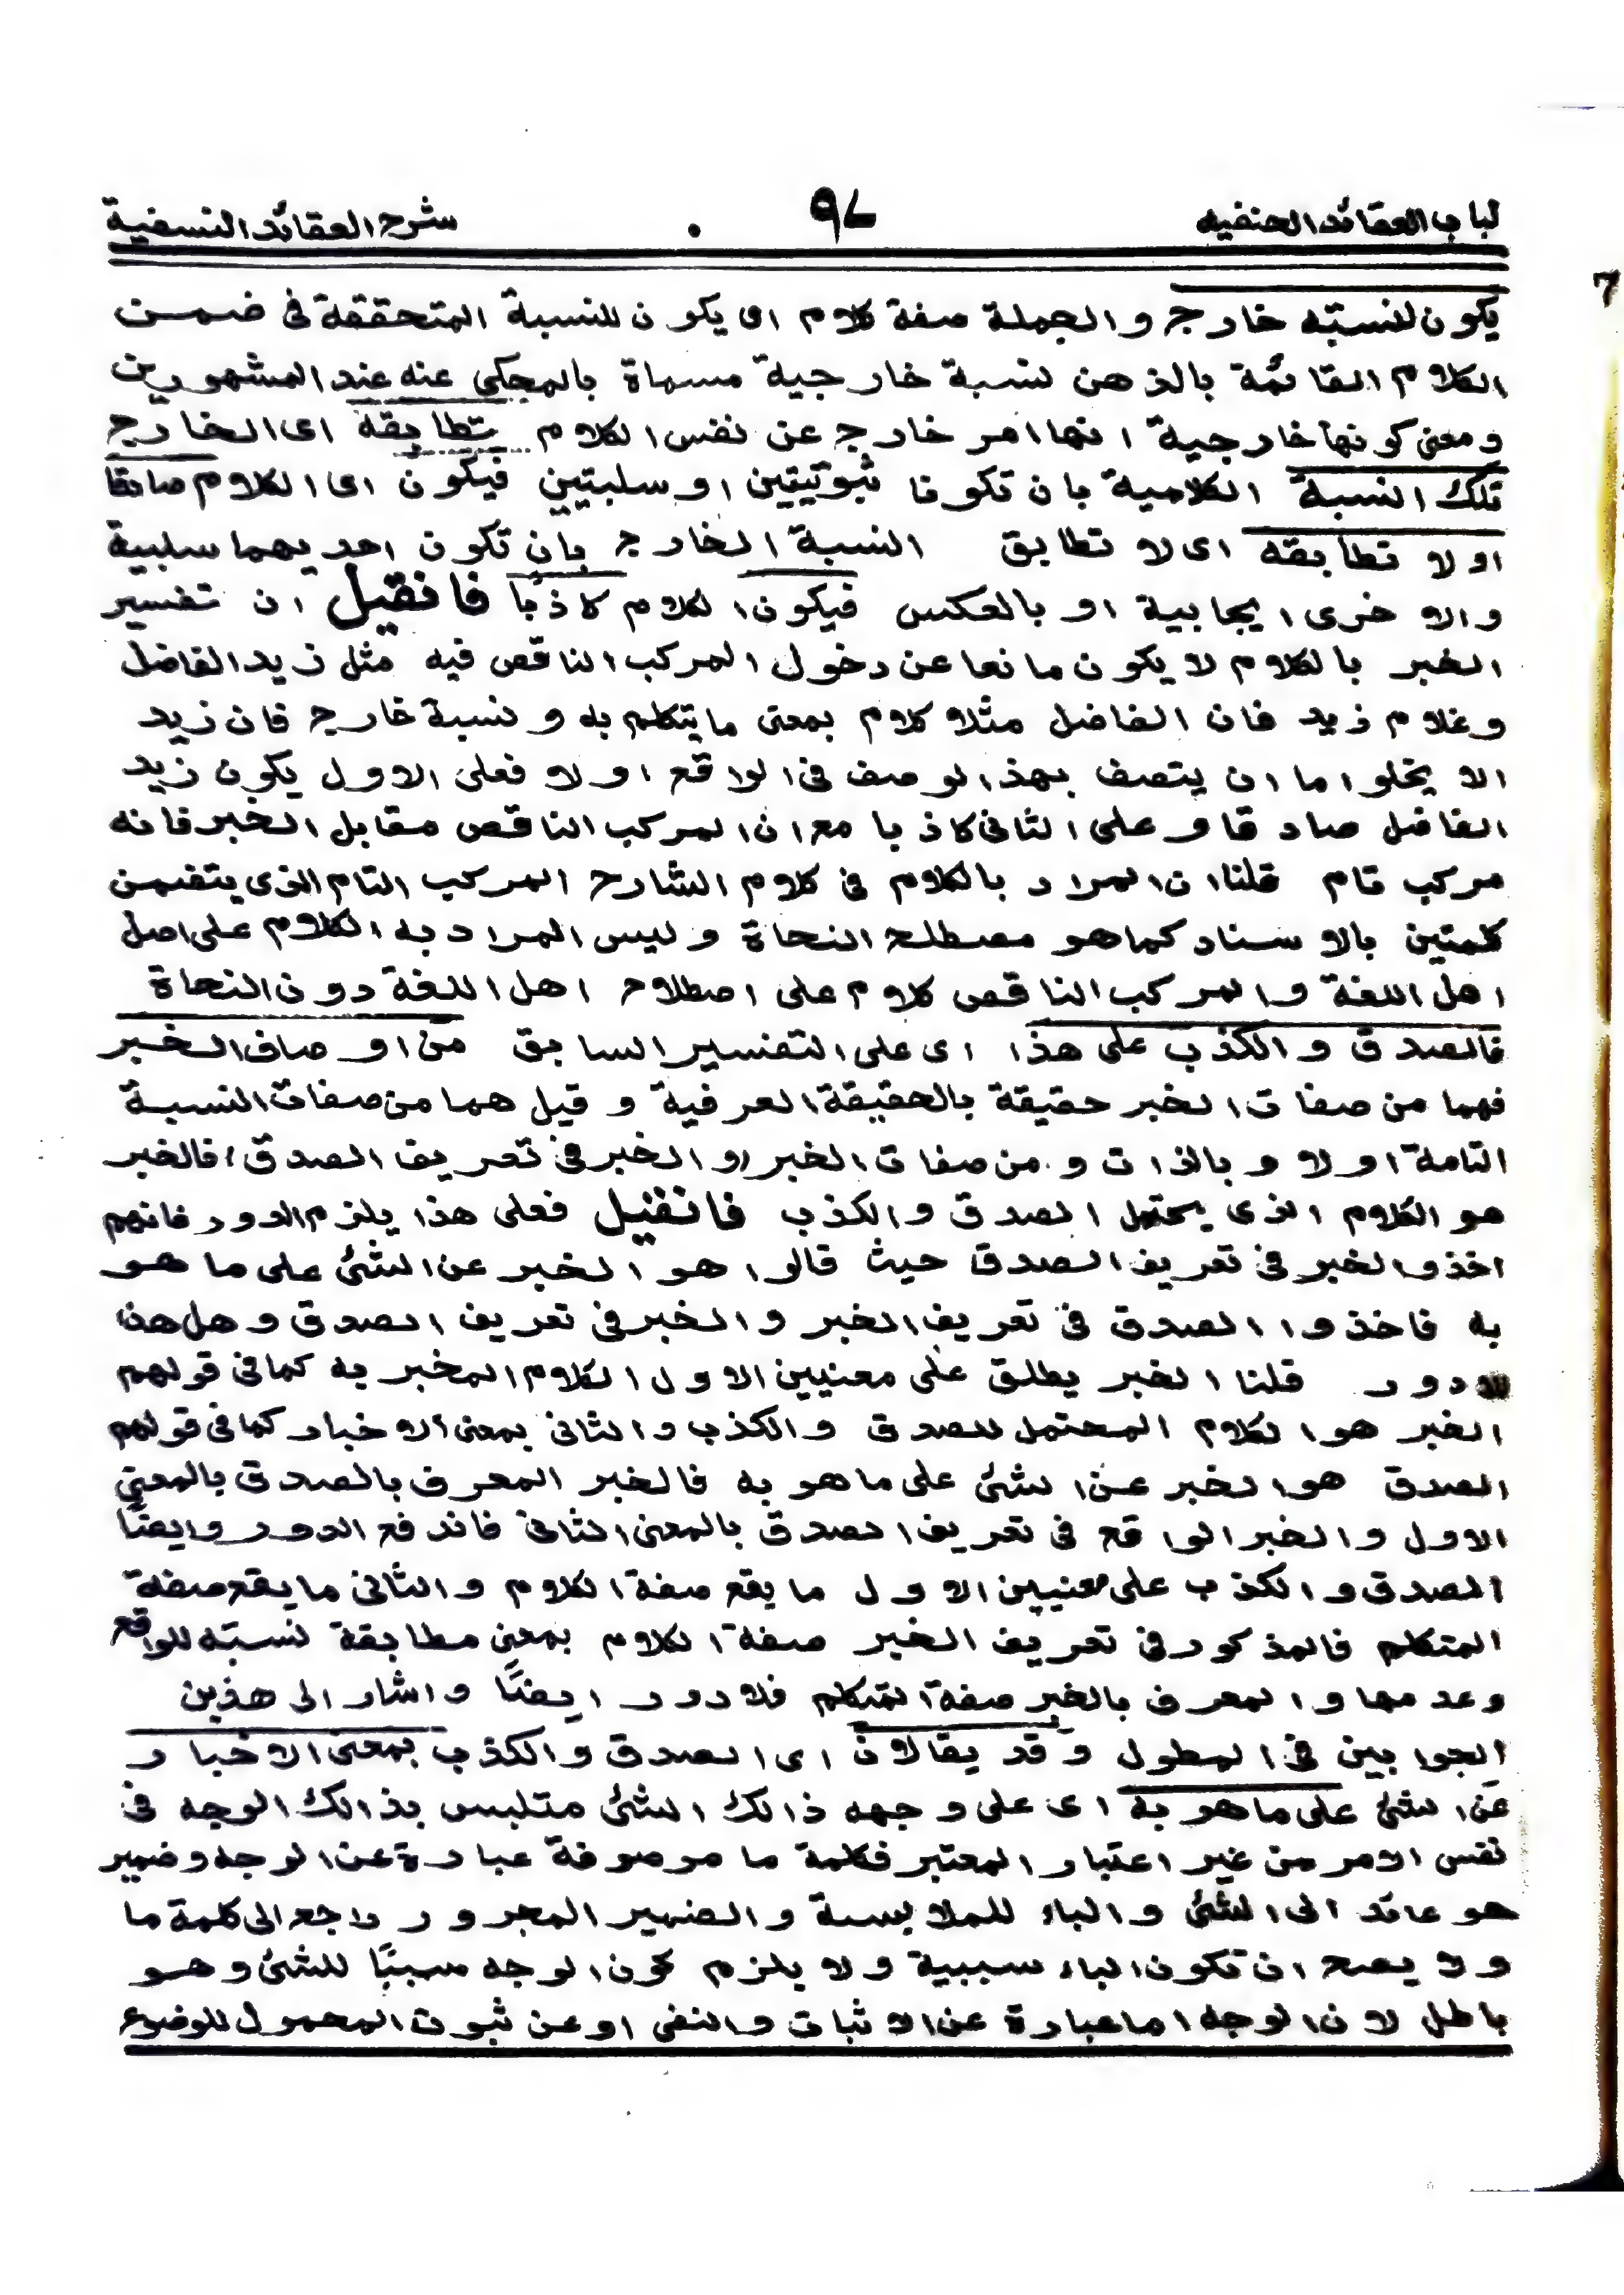 لباب العقائد الحنفيه ٩٧ شرح العقائد النسفية
يكون لنسبته خارج والجملة صفة كلام اى يكون للنسبة المتحققة فى ضمن
الكلام القائمة بالذهن نسبة خارجية مسماة بالمحكى عنه عند المشهورين
ومعنى كونها خارجية انها امر خارج عن نفس الكلام يتطابقه اى الخارج
تلك النسبة الكلامية بان تكونا ثبوتيتين او سلبتين فيكون اى الكلام صادقا
اولا تطابقه اى لا تطابق النسبة الخارج بان تكون احديهما سلبية
والاخرى ايجابية او بالعكس فيكون الكلام كاذبا فان قيل ان تفسير
الخبر بالكلام لا يكون مانعا عن دخول المركب الناقص فيه مثل زيد الفاضل
وغلام زيد فان الفاضل مثلا كلام بمعنى ما يتكلم به ونسبة خارج فان زيد
الا يخلوا ما ان يتصف بهذ الوصف فى الواقع اولا فعلى الاول يكون زيد
الفاضل صادقا وعلى الثانى كاذبا مع ان المركب الناقص مقابل الخبر فانه
مركب تام قلنا ان المراد بالكلام فى كلام الشارح المركب التام الذى يتضمن
كلمتين بالاسناد كما هو مصطلح النحاة وليس المراد به الكلام على اصل
اهل اللغة والمركب الناقص كلام على اصطلاح اهل اللغة دون النحاة
فالصدق والكذب على هذا اى على التفسير السابق من اوصاف الخبر
فهما من صفات الخبر حقيقة بالحقيقة العرفية وقيل هما من صفات النسبة
التامة اولا وبالذات ومن صفات الخبر والخبر فى تعريف الصدق فالخبر
هو الكلام الذى يحتمل الصدق والكذب فان قيل فعلى هذا يلزم الدور فانهم
اخذوا الخبر فى تعريف الصدق حيث قالوا هو الخبر عن الشئ على ما هو
به فاخذوا الصدق فى تعريف الخبر والخبر فى تعريف الصدق وهل هذا
دور قلنا الخبر يطلق على معنيين الاول الكلام المخبر به كما فى قولهم
الخبر هو الكلام المحتمل للصدق والكذب والثانى بمعنى الاخبار كما فى قولهم
الصدق هو الخبر عن الشئ على ما هو به فالخبر المعرف بالصدق بالمعنى
الاول والخبر الواقع فى تعريف الصدق بالمعنى الثانى فاندفع الدور وايضًا
الصدق والكذب على معنيين الاول ما يقع صفة الكلام والثانى ما يقع صفة
المتكلم فالمذكور فى تعريف الخبر صفة الكلام بمعنى مطابقة نسبته للواقع
وعدمها والمعرف بالخبر صفة المتكلم فلا دور ايضًا واشار الى هذين
الجوابين فى المطول وقد يقالان اى الصدق والكذب بمعنى الاخبار
عن الشئ على ما هو به اى على وجهه ذالك الشئ متلبس بذالك الوجه فى
نفس الامر من غير اعتبار المعتبر فكلمة ما موصوفة عبارة عن الوجه وضمير
هو عائد الى الشئ والباء للملابسة والضمير المجرور راجع الى كلمة ما
ولا يصح ان تكون الباء سببية ولا يلزم كون الوجه سببًا للشئ وهو
باطل لان الوجه اما عبارة عن الاثبات والنفى او عن ثبوت المحمول للوضوع